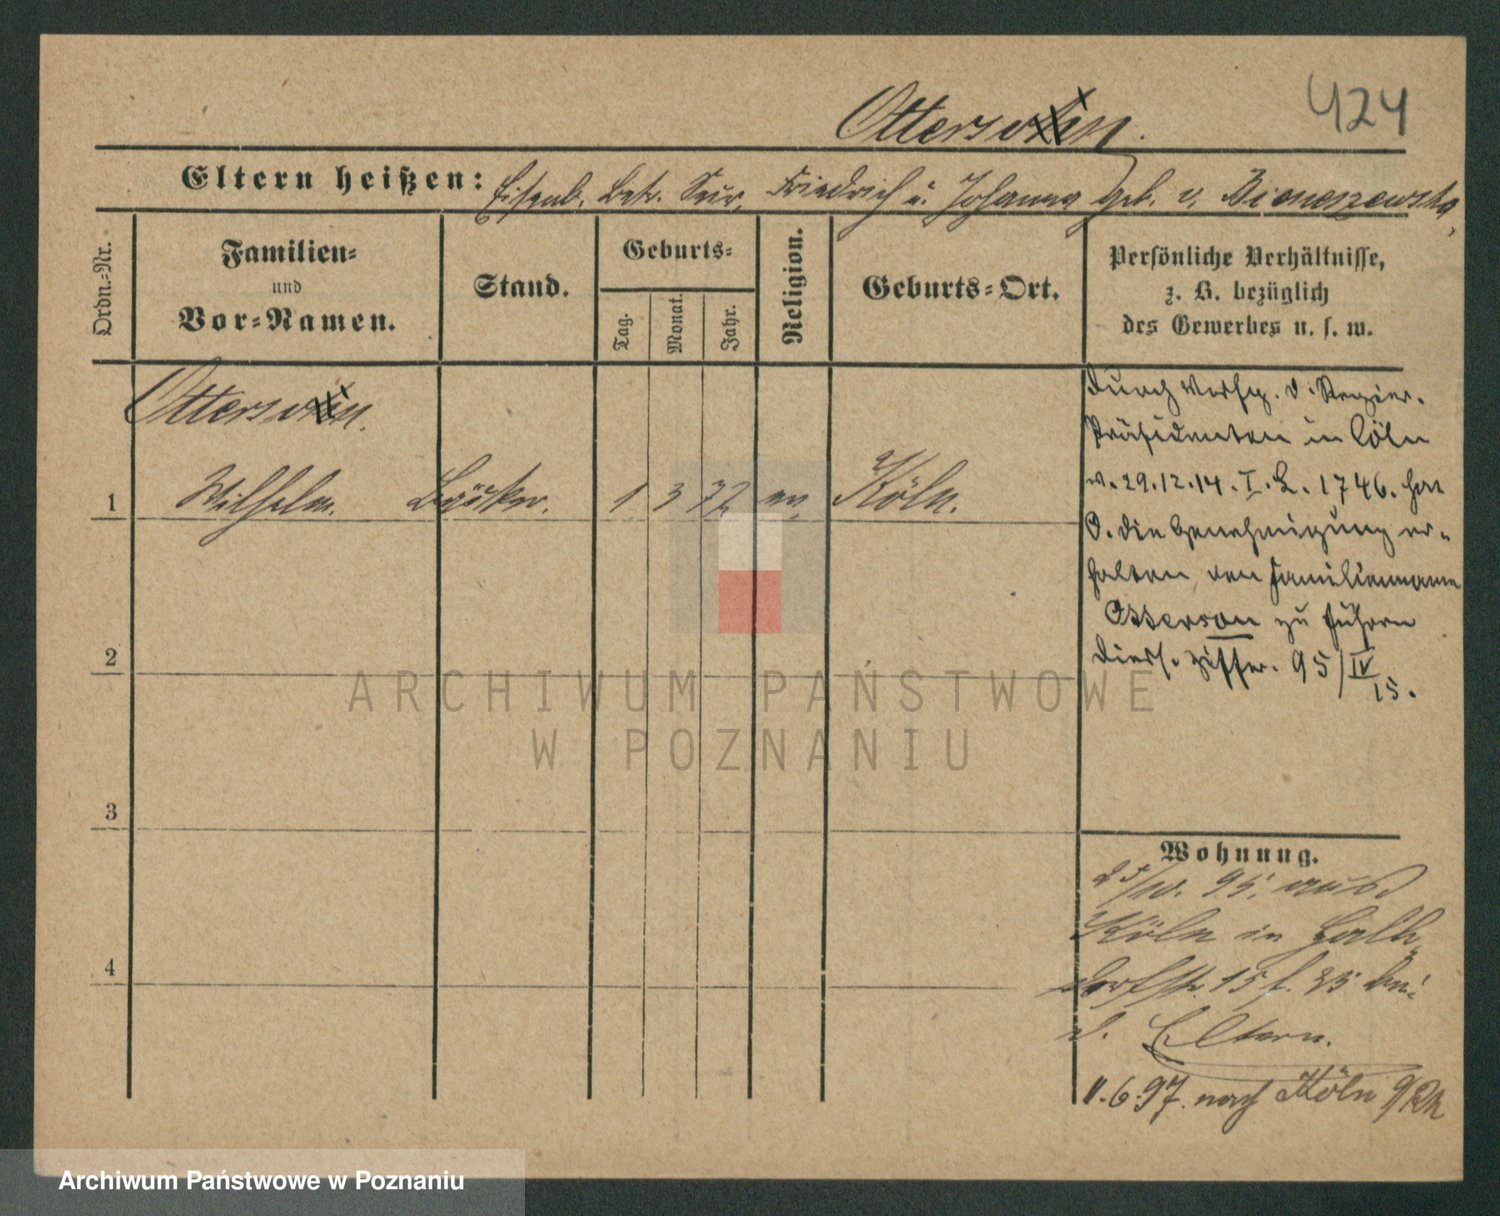 424
Ottersohn.
Eltern heißen: Eisenb. Betr. Secr. Friedrich u. Johanna geb. v.
Ordn.=Nr.
Familien=
und
Vor=Namen.
Stand.
Geburts=
Tag.
Monat.
Jahr.
Religion.
Geburts=Ort.
Persönliche Verhältnisse,
z. B. bezüglich
des Gewerbes u. s. w.
Ottersohn.
1 Wilhelm. 1 3 72 ev. Köln.
2
3
4
Durch Verfg. d. Regier.
Präsidenten in Cöln
v. 29.12.14. I. 1746. hat
O. die Genehmigung er=
halten, den Familienname
Otterson zu führen
Diess. Ziffer. 95/IV
15.
Wohnung.
95. aus
Köln in
dorfstr. 15 bei
d. Eltern.
11.6.97. nach Köln a/Rh
ARCHIWUM PAŃSTWOWE
W POZNANIU
Archiwum Państwowe w Poznaniu